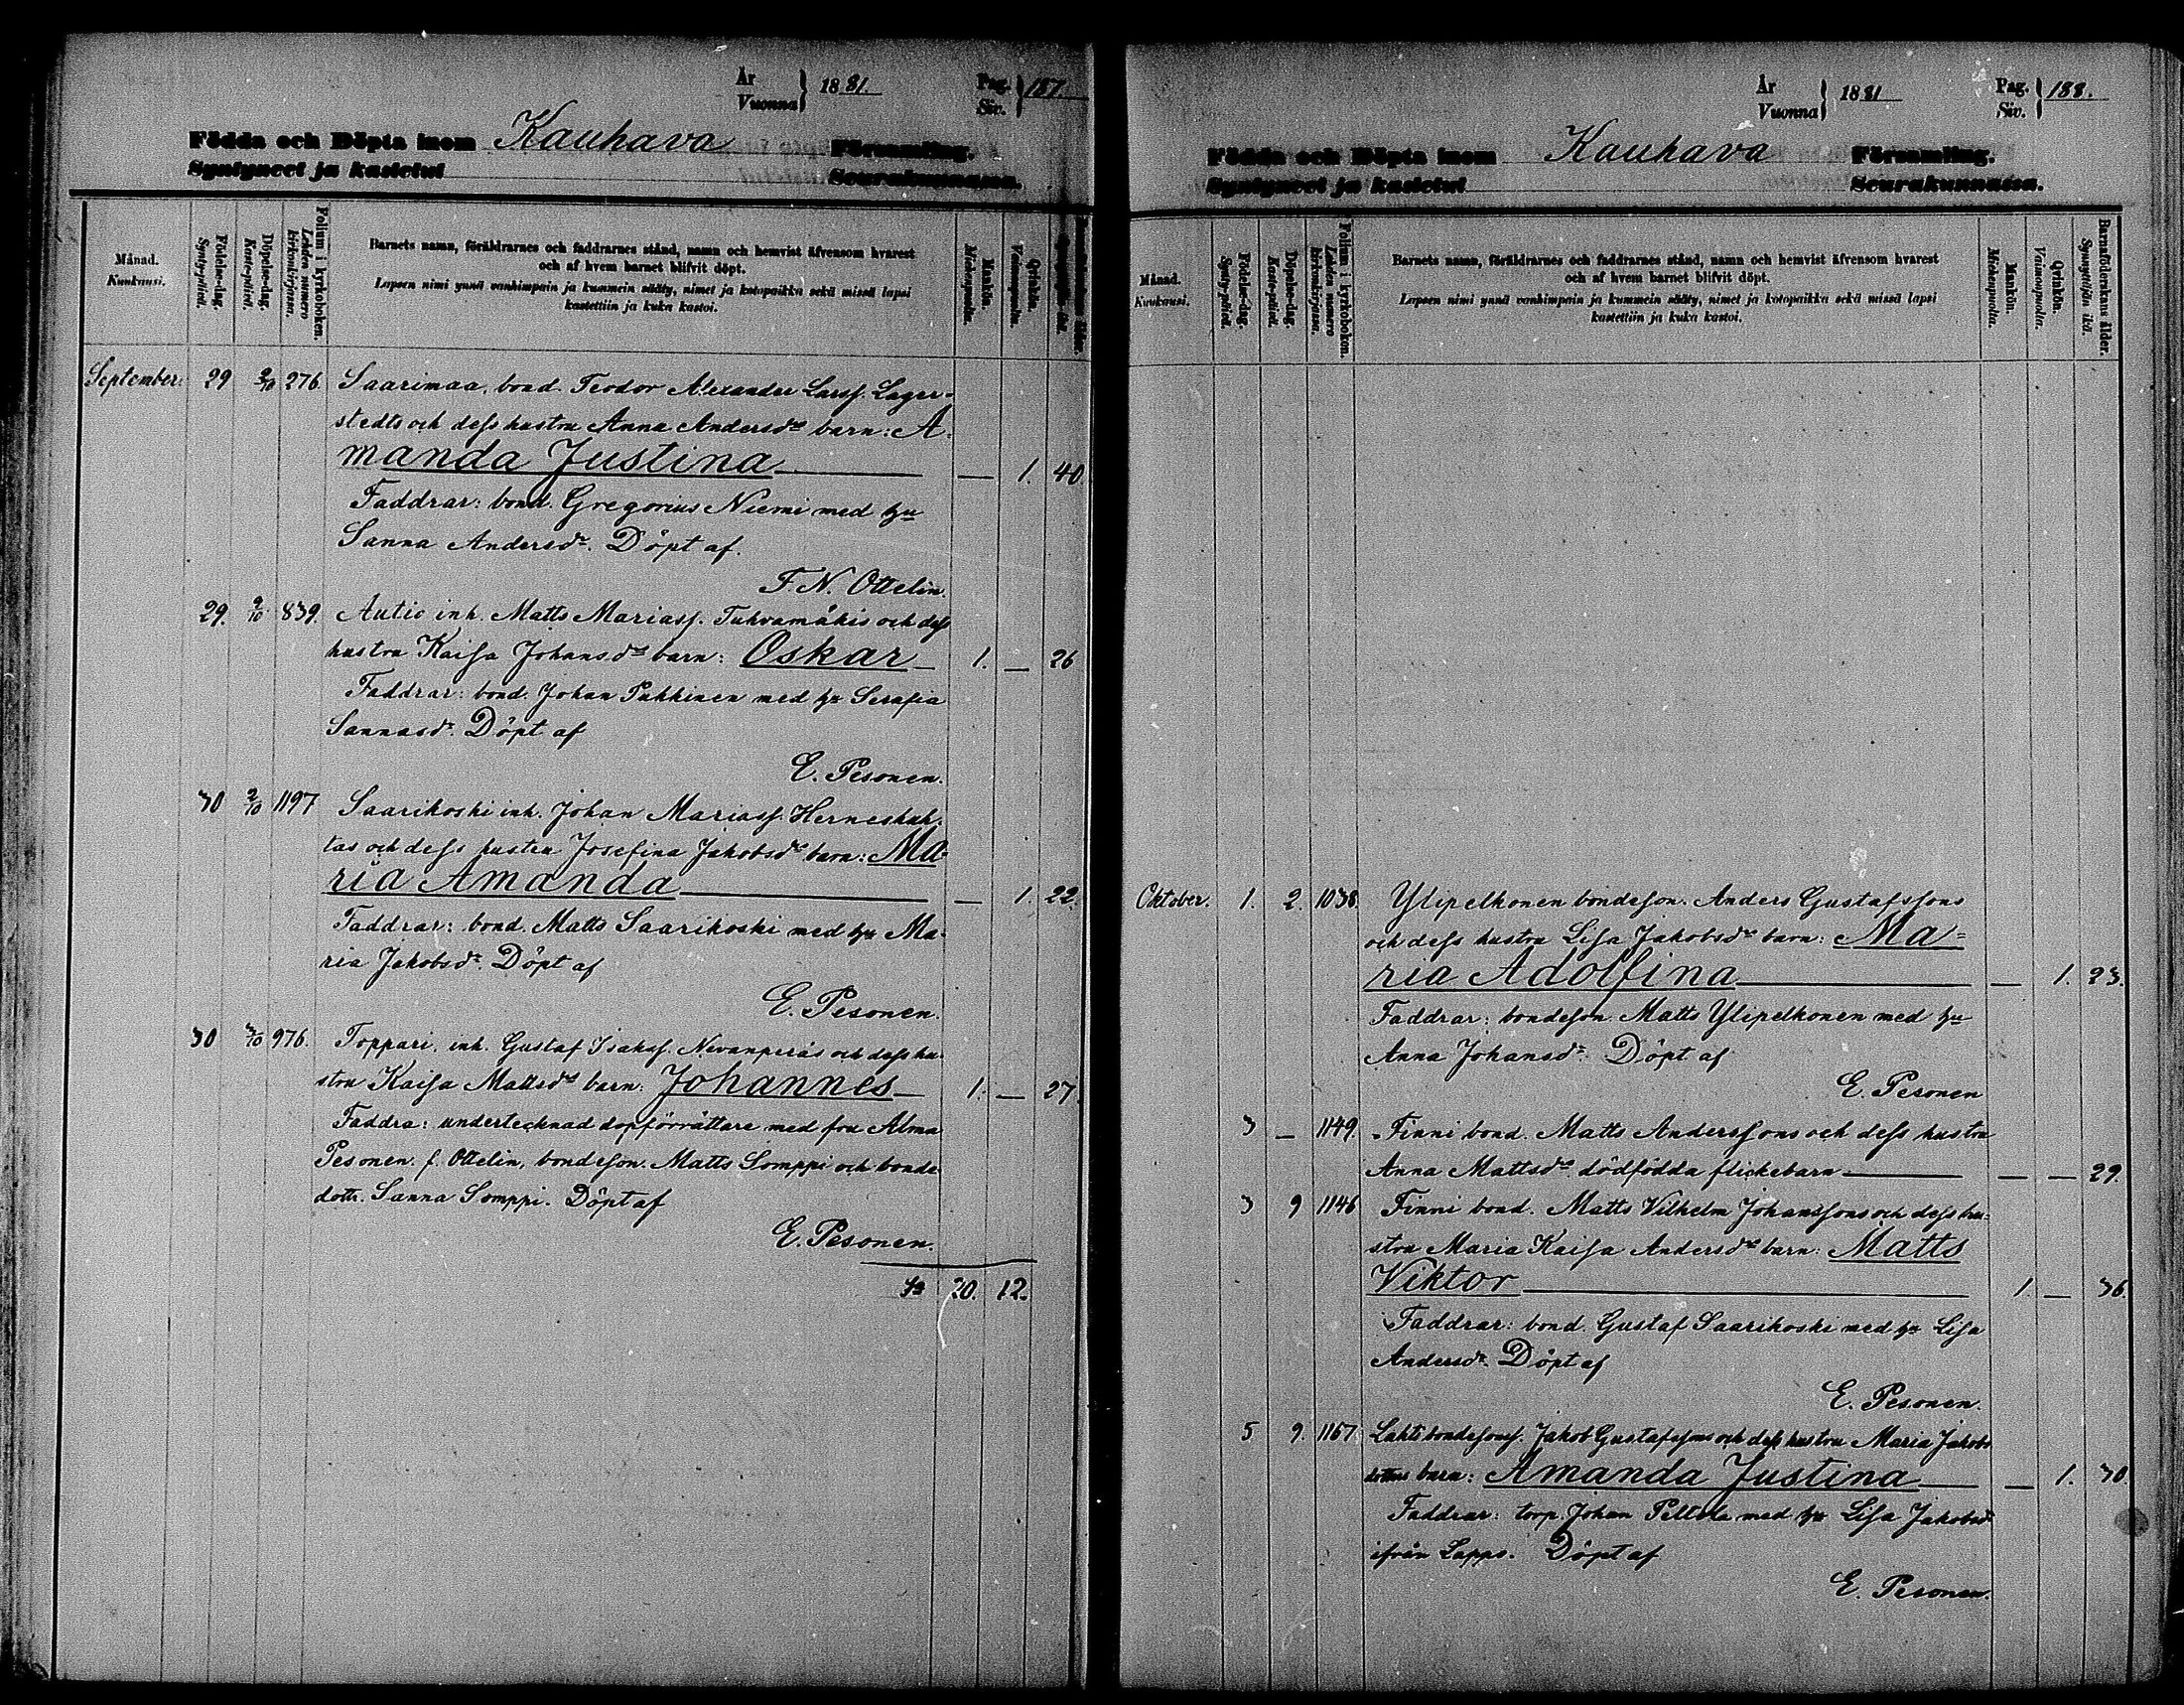 År
Vuonna } 1881.
Pag.
Siv. } 187.
Födda och Döpta inom Kauhava Församling.
Syntyneet ja kastetut Seurakunnassa.
Månad.
Kuukausi.
Födelse-dag.
Synty-päivä.
Döpelse-dag.
Kaste-päivä.
Folium i kyrkoboken.
Lehden numero
kirkonkirjassa.
Barnets namn, föräldrarnes och faddrarnes stånd, namn och hemvist äfvensom hvarest
och af hvem barnet blifvit döpt.
Lapsen nimi ynnä vanhimpain ja kummein sääty, nimet ja kotopaikka sekä missä lapsi
kastettiin ja kuka kastoi.
Mankön.
Miehenpuolia.
Qvinkön.
Vaimonpuolia.
September. 29 2/10 276. Saarimaa, bond. Teodor Alexander Larss. Lager-
stedts och dess hustru Anna Andersds barn: A-
manda Justina — 1. 40.
Faddrar: bond. Gregorius Niemi med hu
Sanna Andersdr. Döpt af.
F. N. Ottelin.
29. 2/10 839. Autio inh. Matts Mariass. Tuhvamäkis och dess
hustru Kaisa Johansds barn: Oskar 1. — 26
Faddrar: bond. Johan Pukkinen med hu Serafia
Sannasdr. Döpt af
E. Pesonen.
30 2/10 1197 Saarikoski inh. Johan Mariass. Herneskuh-
tas och dess hustru Josefina Jakobsds barn: Ma-
ria Amanda — 1. 22.
Faddrar: bond. Matts Saarikoski med hu Ma-
ria Jakobsdr. Döpt af
E. Pesonen.
30 3/10 976. Toppari, inh. Gustaf Isakss. Nevanperäs och dess hu-
stru Kaisa Mattsds barn: Johannes 1. — 27.
Faddra: undertecknad dopförrättare med fru Alma
Pesonen f. Ottelin, bondeson. Matts Somppi och bonde-
dottr. Sanna Somppi. Döpt af
E. Pesonen.
Sa 20. 12.
År
Vuonna } 1881
Pag.
Siv. } 188.
Födda och Döpta inom Kauhava Församling.
Syntyneet ja kastetut Seurakunnassa.
Månad.
Kuukausi.
Födelse-dag.
Synty-päivä.
Döpelse-dag.
Kaste-päivä.
Folium i kyrkoboken.
Lehden numero
kirkonkirjassa.
Barnets namn, föräldrarnes och faddrarnes stånd, namn och hemvist äfvensom hvarest
och af hvem barnet blifvit döpt.
Lapsen nimi ynnä vanhimpain ja kummein sääty, nimet ja kotopaikka sekä missä lapsi
kastettiin ja kuka kastoi.
Mankön.
Miehenpuolia.
Qvinkön.
Vaimonpuolia.
Barnaföderskans ålder.
Synnyttäjän ikä.
Oktober. 1. 2. 1038. Ylipelkonen bondeson. Anders Gustafssons
och dess hustru Lisa Jakobsds barn: Ma-
ria Adolfina — 1. 23.
Faddrar: bondeson Matts Ylipelkonen med hu
Anna Johansdr. Döpt af
E. Pesonen
3 — 1149. Finni bond. Matts Anderssons och dess hustru
Anna Mattsds dödfödda flickebarn — — 29.
3 9 1146 Finni bond. Matts Vilhelm Johanssons och dess hu-
stru Maria Kaisa Andersds barn: Matts
Viktor 1. — 36.
Faddrar: bond. Gustaf Saarikoski med hu Lisa
Andersdr. Döpt af
E. Pesonen.
5 9. 1157. Lahti bondesons. Jakob Gustafssons och dess hustru Maria Jakobs
dotters barn: Amanda Justina — 1. 30.
Faddrar: torp. Johan Peltola med hu Lisa Jakobsdr
ifrån Lappo. Döpt af
E. Pesonen.